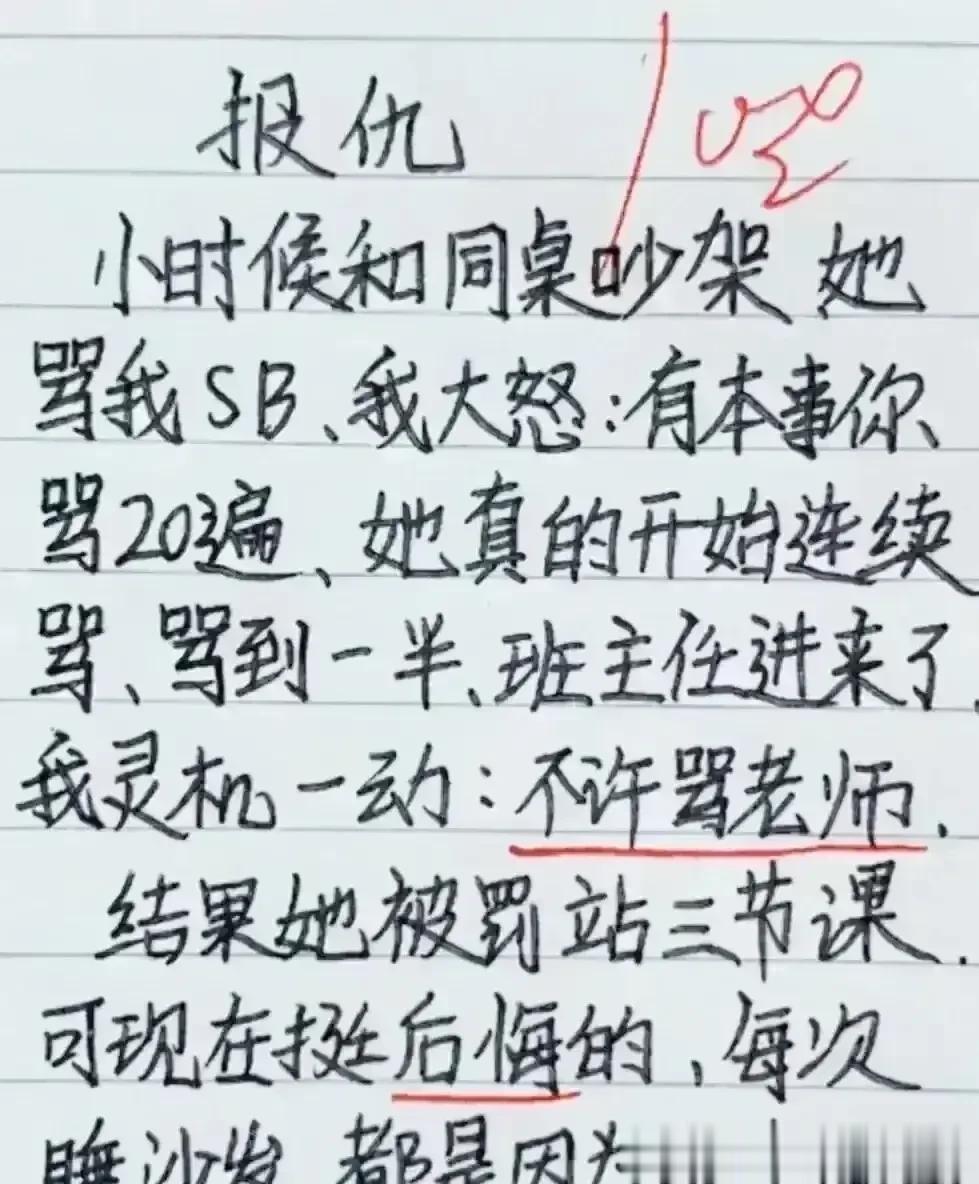 报仇
小时候和同桌吵架 她
骂我SB、我大怒:有本事你、
骂20遍、她真的开始连续
骂、骂到一半、班主任进来了、
我灵机一动:不许骂老师.
结果她被罚站三节课.
可现在挺后悔的、每次
睡沙发 都是因为